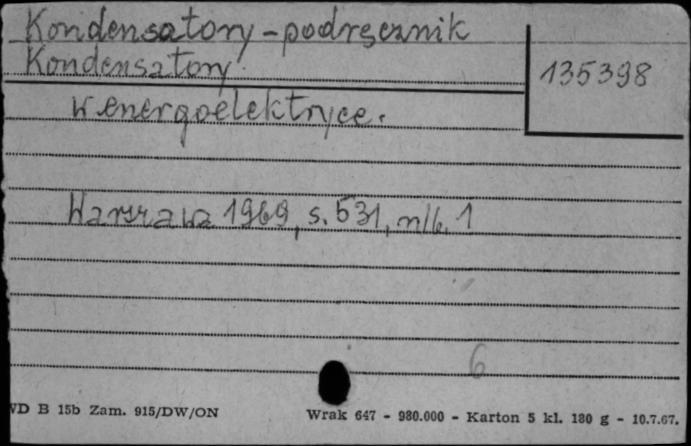 Kondensatory - podręcznik
Kondensatory
135398
w energoelektryce.
Warszawa 1969, s. 531, nlb. 1
6
WD B 15b Zam. 915/DW/ON
Wrak 647 - 980.000 - Karton 5 kl. 180 g - 10.7.67.